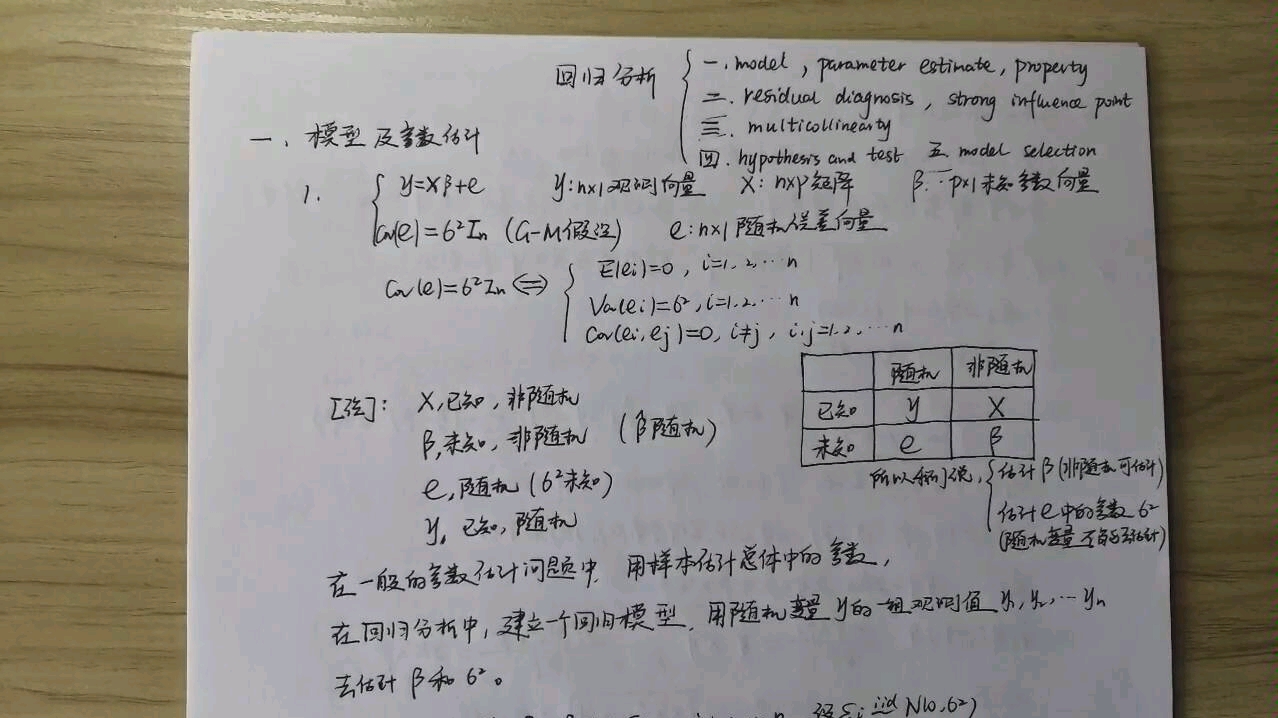 回归分析 { 一. model , parameter estimate, property
二. residual diagnosis , strong influence point
三. multicollinearity
四. hypothesis and test 五. model selection
一、模型及参数估计
1. { y=Xβ+e y: n×1观测向量 X: n×p矩阵 β: p×1未知参数向量
Cov(e)=σ²In (G-M假设) e: n×1随机误差向量
Cov(e)=σ²In ⟺ { E(ei)=0 , i=1,2,…n
Var(ei)=σ² , i=1,2,…n
Cov(ei,ej)=0, i≠j , i,j=1,2,…n
随机 非随机
已知 y X
未知 e β
[注]: X,已知,非随机
β,未知,非随机 (β̂随机)
e,随机 (σ²未知)
y, 已知,随机
所以我们说, { 估计β (非随机可估计)
估计e中的参数σ²
(随机变量不能估计)
在一般的参数估计问题中, 用样本估计总体中的参数,
在回归分析中,建立一个回归模型, 用随机变量y的一组观测值 y₁,y₂,…yn
去估计β和σ²。
iid N(0,σ²)